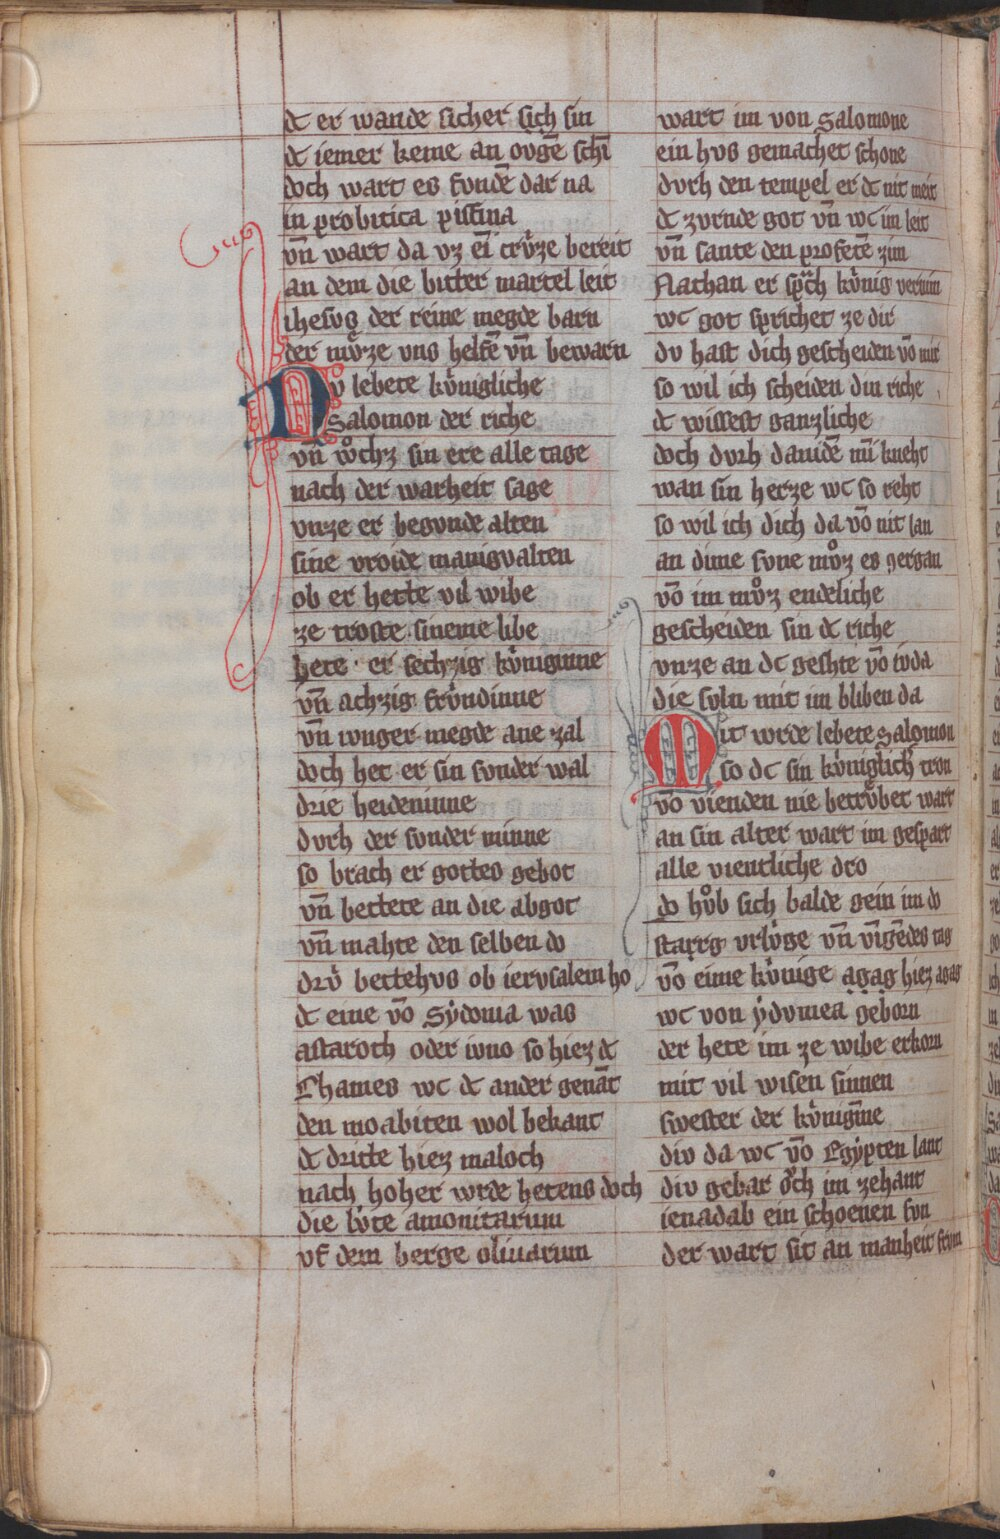 dc er wande sicher sich sin
dc iemer keme an ovgē schī
doch wart es fundē dar na
in probitica pissina
vn̄ wart da vz eī crv̍ze bereit
an dem die bitter martel leit
ihesvs der reine megde barn
der mv̊ze vns helfē vn̄ bewarn
Dv lebete kv̍nigliche
Salomon der riche
vn̄ wͦchz sin ere alle tage
nach der warheit sage
vnze er begvnde alten
sine vroide manigvalten
ob er hette vil wibe
ze troste sineme libe
hete er sechzig kv̍niginne
vn̄ achzig frv̍ndinne
vn̄ ivnger megde ane zal
doch het er sin svnder wal
drie heideninne
dvrh der svnder minne
so brach er gottes gebot
vn̄ bettete an die abgot
vn̄ mahte den selben do
drv̍ bettehvs ob iervsalem ho
dc eine vō Sydonia was
astaroth oder ivno so hiez dc
Chames wc dc ander genāt
den moabiten wol bekant
dc dritte hiez maloch
nach hoher wrde hetens doch
die lv̍te amonitarum
vf dem berge oliuarum
wart im von Salomone
ein hvs gemachet schone
dvrh den tempel er dc nit meit
dc zvrnde got vn̄ wc im leit
vn̄ sante den profetē zim
Nathan er spͣch kv̍nig vernim
wc got sprichet ze dir
dv hast dich gescheiden vō mir
so wil ich scheiden din riche
dc wissest ganzliche
doch dvrh dauidē mī kneht
wan sin herze wc so reht
so wil ich dich da vō nit lan
an dime svne mv̊z es zergan
vō im mv̊z endeliche
gescheiden sin dc riche
vnze an dc geslhte vō ivda
die svln mit im bliben da
Mit wrde lebete Salomon
so dc sin kv̍niglich tron
vō vienden nie betrv̊bet wart
an sin alter wart im gespart
alle vientliche dro
do hv̊b sich balde gein im do
starrg vrlv̍ge vn̄ vīgēdes tag
vō eime kv̍nige agag hiez agag
wc von ydvmea geborn
der hete im ze wibe erkorn
mit vil wisen sinnen
swester der kv̍nigīne
div da wc vō Egypten lant
div gebar o̍ch im zehant
ienadab ein schoenen svn
der wart sit an manheit frvm